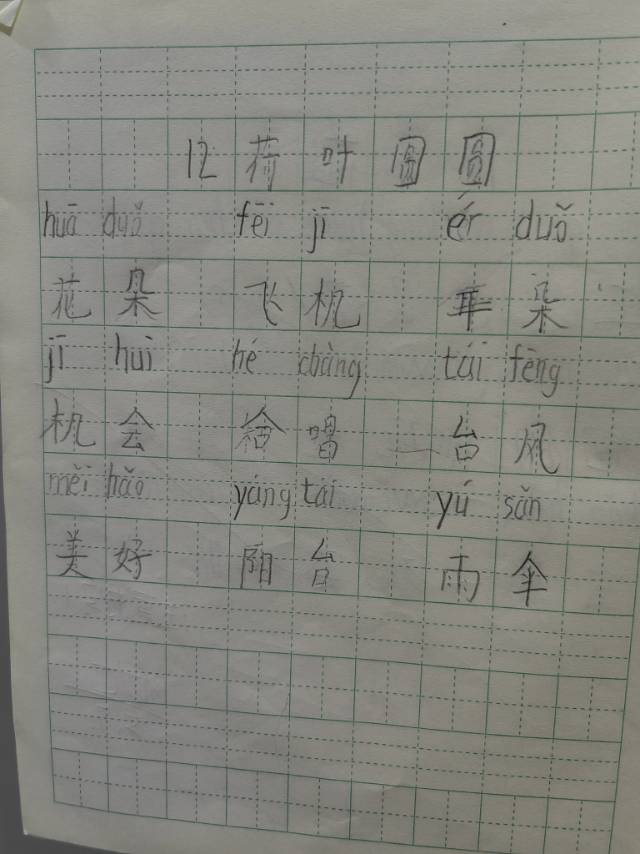 12 荷叶圆圆
huā duǒ fēi jī ěr duǒ
花朵 飞机 耳朵
jī huì hé chàng tái fēng
机会 合唱 台风
měi hǎo yáng tái yú sǎn
美好 阳台 雨伞